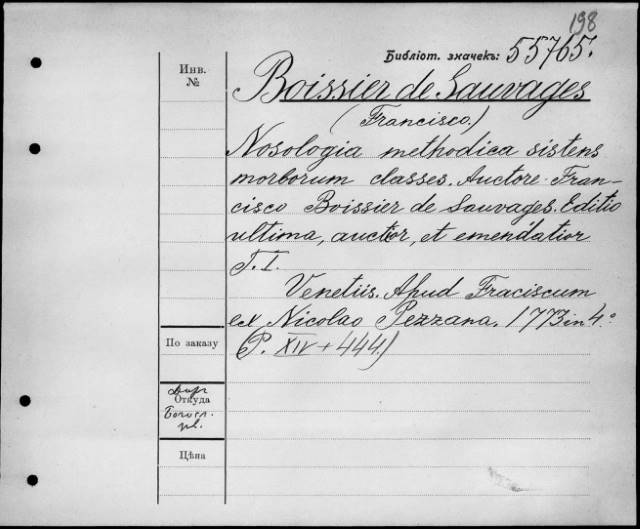 198
Библіот. значекъ: 55765.
Инв.
№
Boissier de Sauvages
(Francisco.)
Nosologia methodica sistens
morborum classes. Auctore Fran-
cisco Boissier de Sauvages. Editio
ultima, auctior, et emendatior
T. I.
Venetiis. Apud Fraciscum
ex Nicolao Pezzana. 1773 in 4.º
По заказу
(P. XIV + 444.)
Откуда
Цѣна